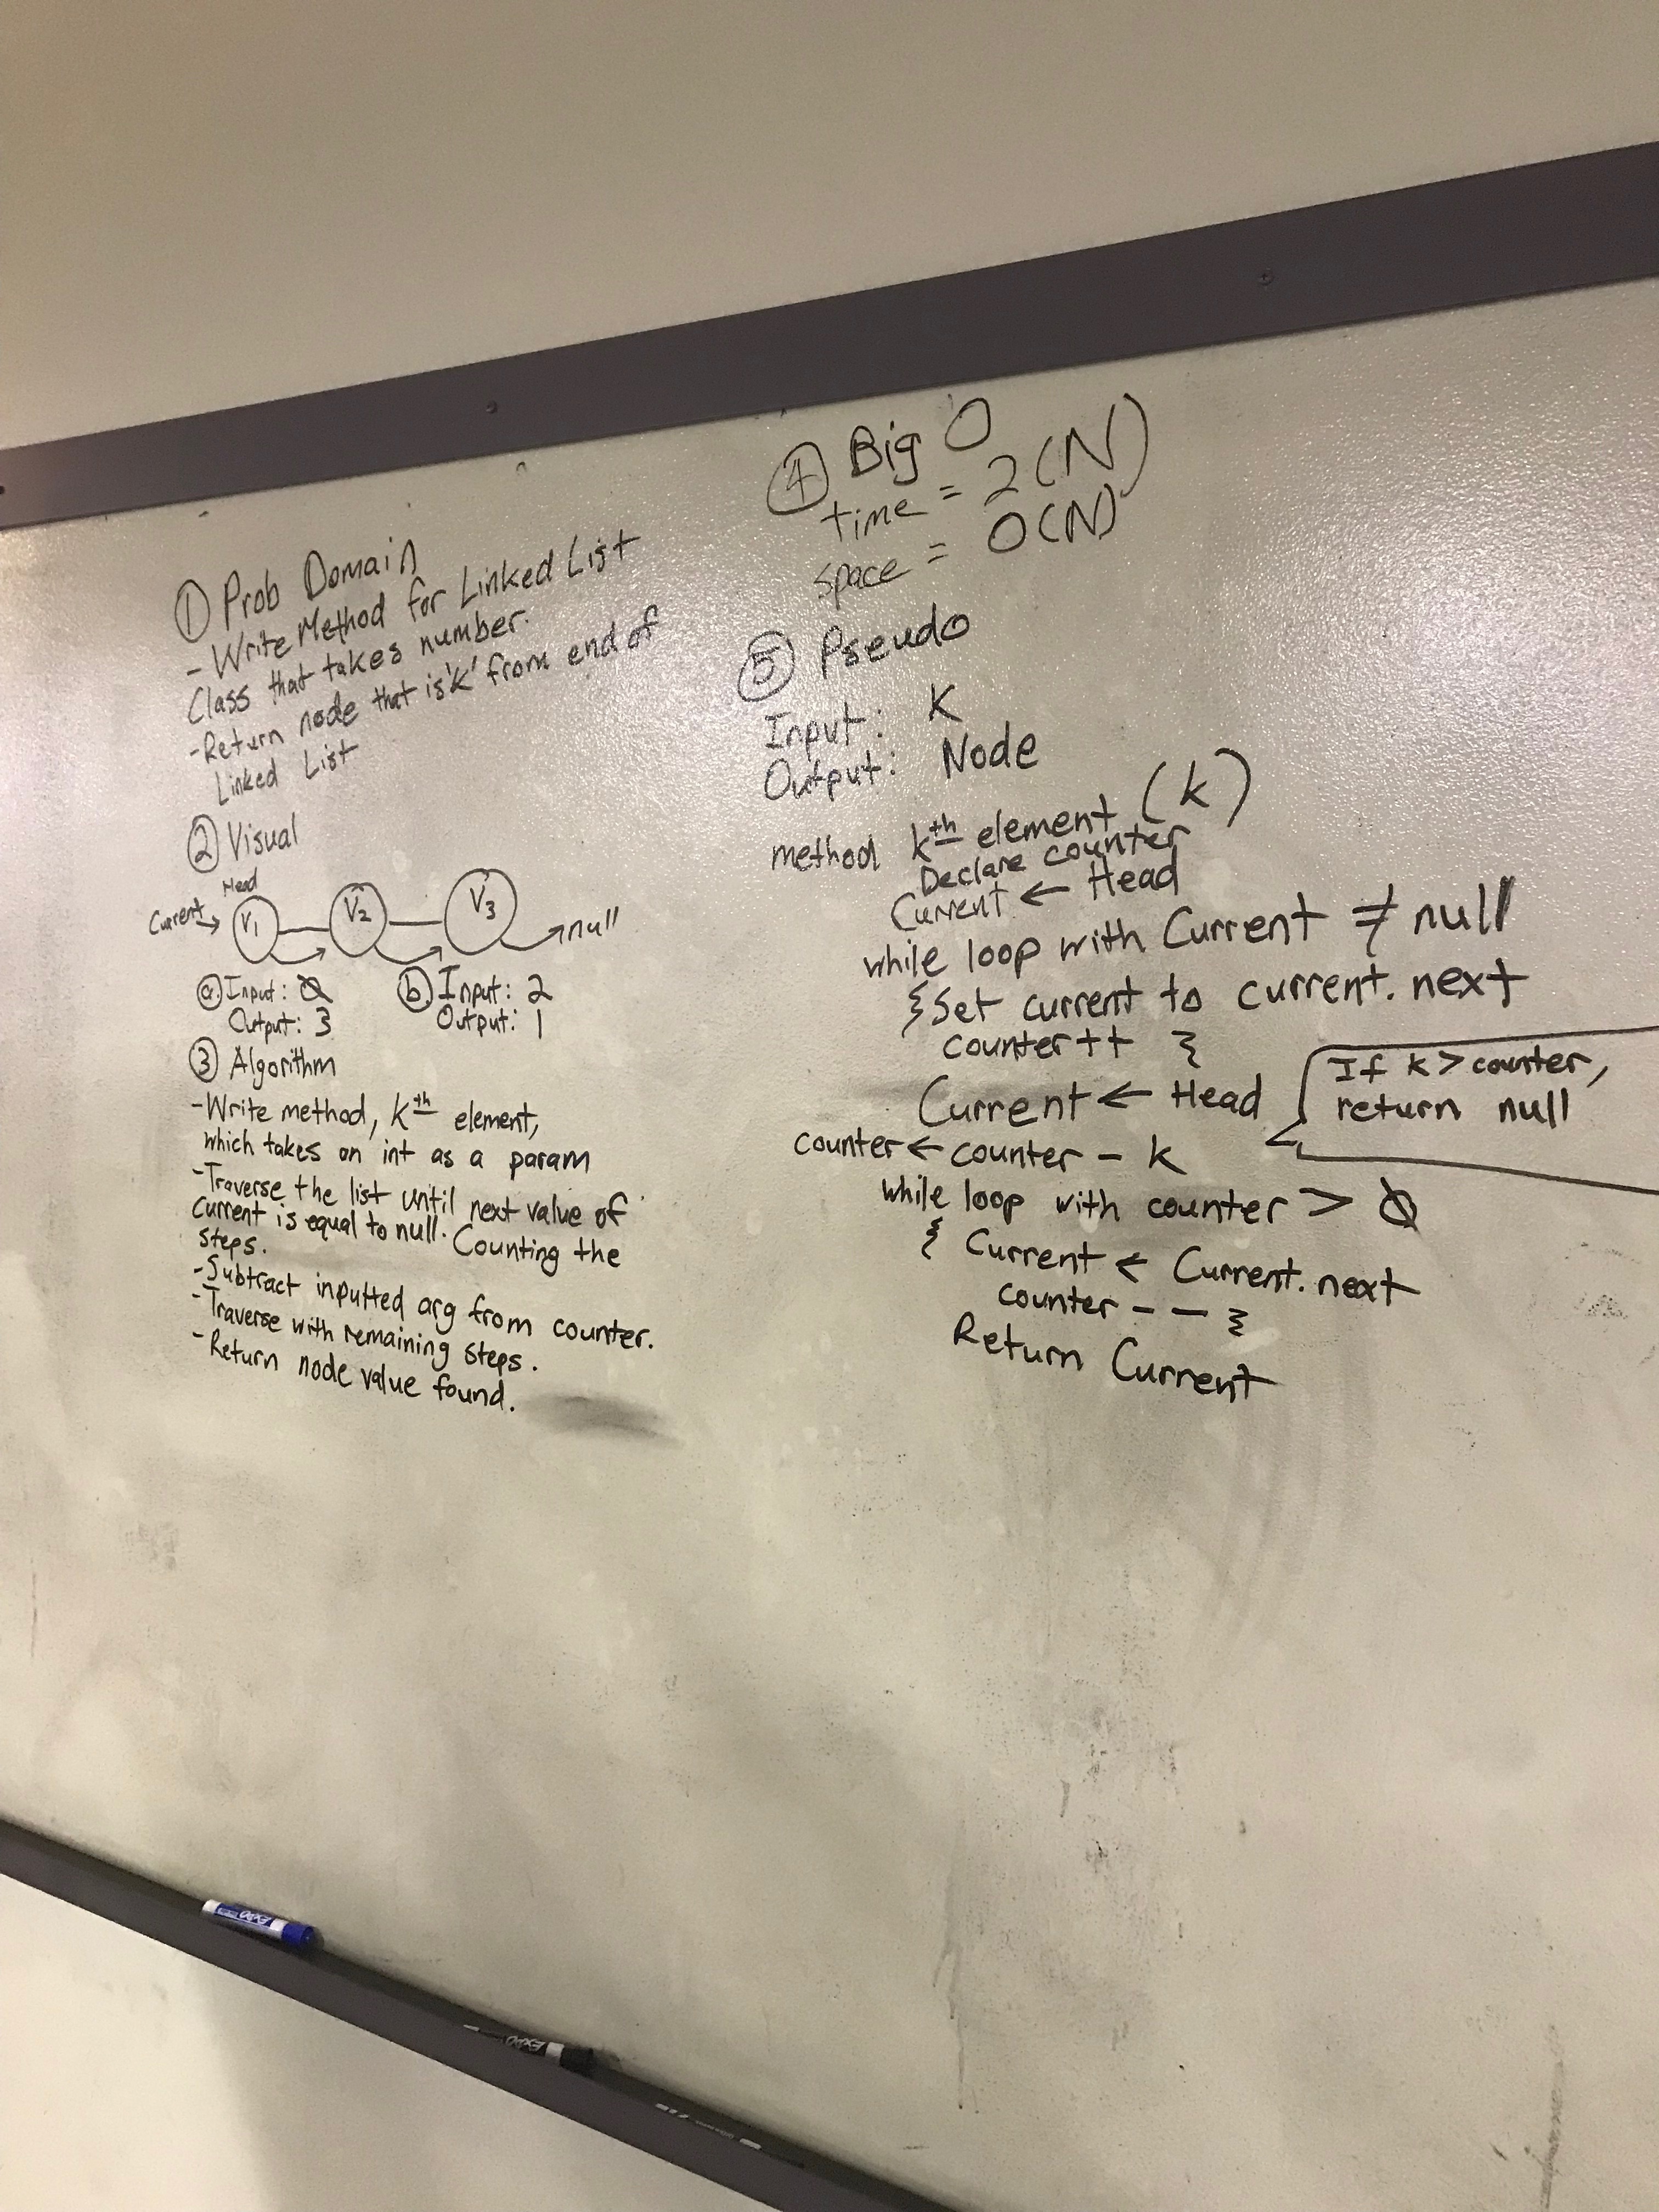 ① Prob Domain
- Write Method for Linked List
Class that takes number.
- Return node that is 'k' from end of
Linked List
② Visual
Head
Current → V1 V2 V3 null
ⓐ Input: 0
Output: 3
ⓑ Input: 2
Output: 1
③ Algorithm
- Write method, kth element,
which takes on int as a param
- Traverse the list until next value of
current is equal to null. Counting the
steps.
- Subtract inputted arg from counter.
- Traverse with remaining steps.
- Return node value found.
④ Big O
time = 2(N)
space = O(N)
⑤ Pseudo
Input: K
Output: Node
method kth element (k)
Declare counter
Current ← Head
while loop with Current ≠ null
{Set current to current.next
counter++ }
Current ← Head
If k > counter,
return null
counter ← counter - k
while loop with counter > 0
{ Current ← Current.next
counter - - }
Return Current
EXPO
EXPO